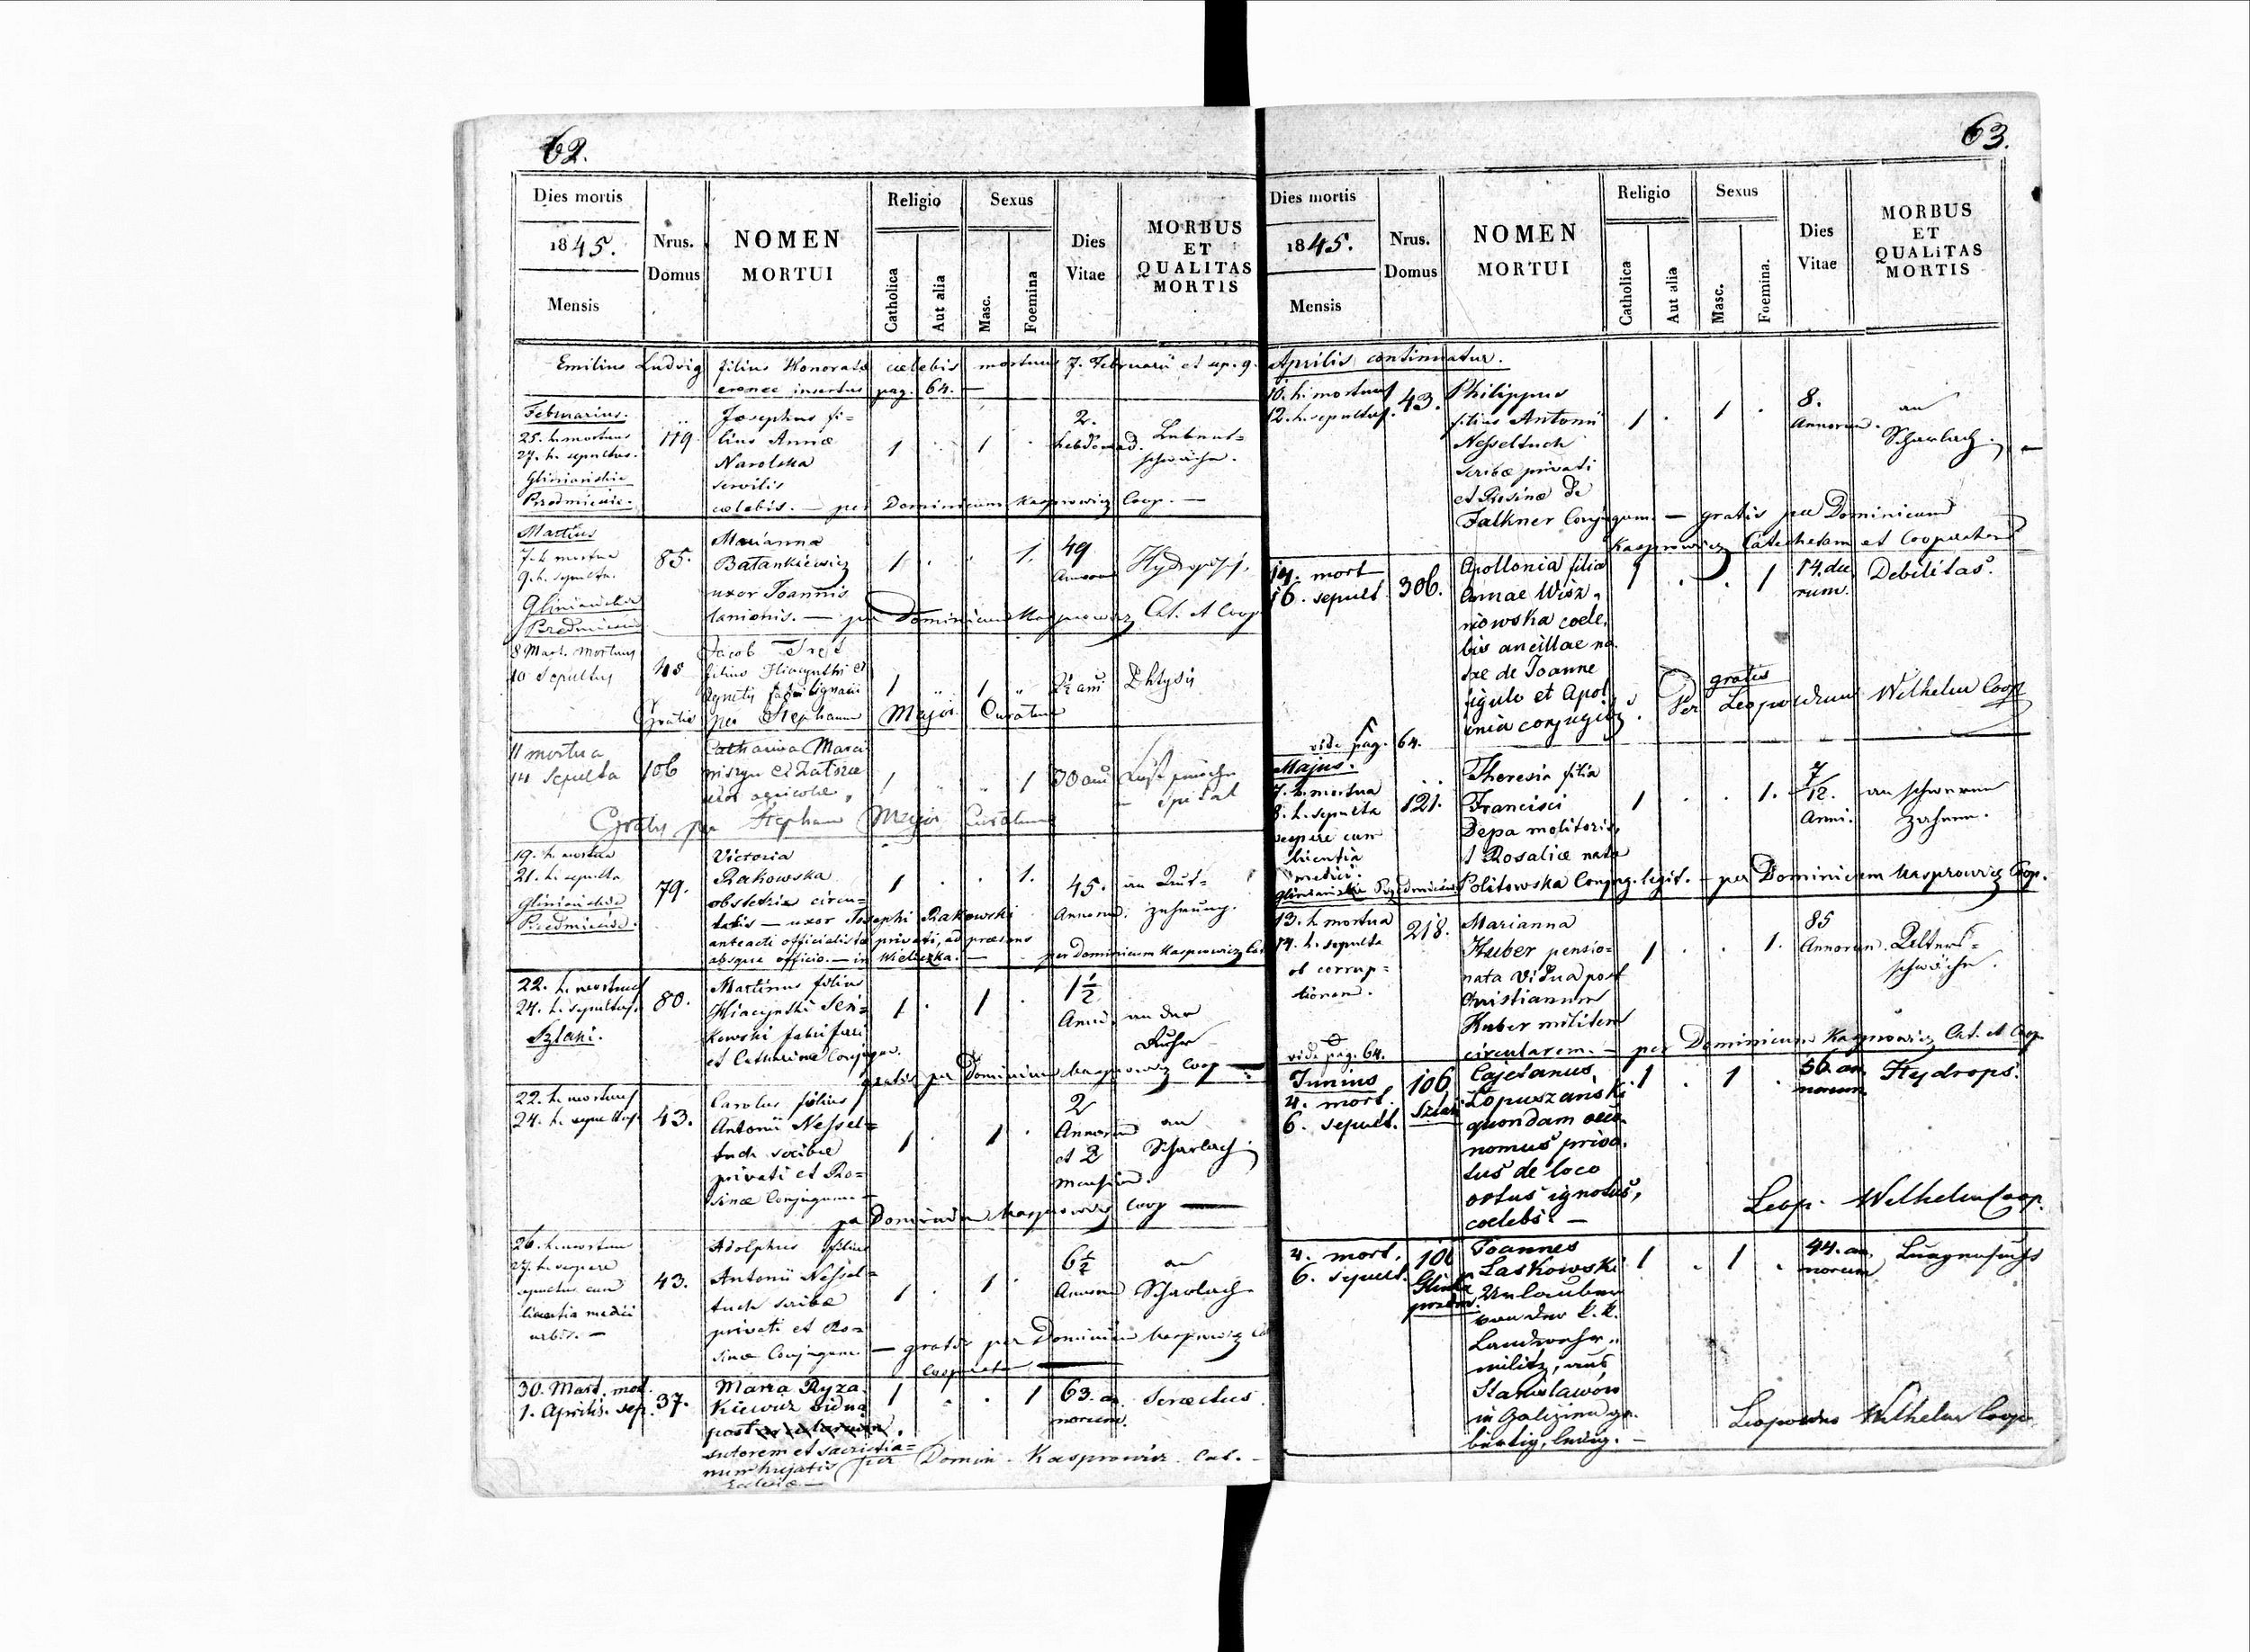 62.
Dies mortis
1845.
Mensis
Nrus.
Domus
NOMEN
MORTUI
Religio
Catholica
Aut alia
Sexus
Masc.
Foemina
Dies
Vitae
MORBUS
ET
QUALITAS
MORTIS
Emilius Ludvig filius Honoratæ cælebis mortuus 7. Februarii et
insertus pag. 64. —
Februarius.
25. h. mortuus
27. h. sepultus.
Gliniańskie
Przedmieście.
119.
Josephus fi=
lius Annæ
Narolska
servilis
cælebis. — per Dominicum Kasprowicz Coop. —
1 . 1 .
2.
hebdomad.
Lebens=
schwäche.
Martius
7. h. mortua
9. h. sepulta.
Gliniańskie
Przedmieście
85.
Marianna
Batankiewicz
uxor Joannis
lanionis. — per Dominicum Kasprowicz Cat. et Coop
1 . . 1.
49
Annorum
Hydropisi.
8 Mart. mortuus
10 Sepultus
48
Jacob
filius Hiacynthi et
Agnetis fabri lignarii
Gratis per Stephanum Major Curatum
1 " 1 "
2½ anni
Phtysis
11 mortua
14 Sepulta
106
Catharina Marci
uxor agricolae,
1 " " 1
30 ann
Spital
Gratis per Stephanum Major Curatum
19. h. mortua
21. h. sepulta
Gliniańskie
Przedmieście.
79.
Victoria
Rakowska
obstetrix circu=
laris — uxor Josephi Rakowski
anteacti officialistæ privati, ad præsens
absque officio. — in Wieliczka. — per Dominicum Kasprowicz
1 . . 1.
45.
Annorum.
an
zehrung.
22. h. mortuus
24. h. sepultus.
Szlaki.
80.
Martinus filius
Hiacynthi Sen=
kowski fabri
et Catharinæ Conjugum.
gratis per Dominicum Kasprowicz Coop
1 . 1 .
1½
Anni
an der
Ruhr
22. h. mortuus
24. h. sepultus
43.
Carolus filius
Antonii Nessel=
tuch scribæ
privati et Ro=
sinæ Conjugum —
per Dominicum Kasprowicz Coop
1 . 1 .
2
Annorum
et 2
Mensium.
an
Scharlach
26. h. mortuus
27. h. vespere
sepultus cum
licentia medici
urbis. —
43.
Adolphus filius
Antonii Nessel=
tuch scribæ
privati et Ro=
sinæ Conjugum — gratis per Dominicum Kasprowicz
Cooperator
1 . 1 .
6½
Annorum
an
Scharlach
30. Mart. mort.
1. Aprilis. sep.
37.
Maria Ryza
kiewicz vidua
post
sutorem et sacristia=
num hujatis per Domin. Kasprowicz Cat. —
Ecclesiæ —
1 . . 1
63. an
norum.
Senectus.
63.
Dies mortis
1845.
Mensis
Nrus.
Domus
NOMEN
MORTUI
Religio
Catholica
Aut alia
Sexus
Masc.
Foemina.
Dies
Vitae
MORBUS
ET
QUALITAS
MORTIS
Aprilis continuatur.
10. h. mortuus
12. h. sepultus.
43.
Philippus
filius Antonii
Nesseltuch
scribæ privati
et Rosinæ de
Falkner Conjugum. — gratis per Dominicum
Kasprowicz Catechetam et Cooperatorem
1 . 1 .
8.
Annorum.
an
Scharlach.
14. mort
16. sepult.
306.
Apollonia filia
Annae Wisz,
niowska coele,
bis ancillae na
tae de Joanne
figulo et Apol
lonia conjugibus.
1 . . 1
14. die
rum.
Debilitas.
gratis
Per Leopoldum Wilhelm Coop
vide pag. 64.
Majus.
7. h. mortua
8. h. sepulta
vespere cum
licentia
medici.
Gliniańskie Przedmieście
121.
Theresia filia
Francisci
Depa molitoris,
et Rosaliæ nata
Politowska Conjug. legit. — per Dominicum Kasprowicz Coop.
1 . . 1.
7/12.
Anni.
an schweren
Zahnen.
13. h. mortua
14. h. sepulta
ob corrup=
tionem.
218.
Marianna
Huber pensio=
nata Vidua post
Christianum
Huber militem
circularem. — per Dominicum Kasprowicz Cat. et Coop
1 . . 1.
85
Annorum.
Alters=
schwäche.
vide pag. 64.
Junius
4. mort.
6. sepult.
106
Szlaki
Cajetanus
Łopuszański
quondam oeco
nomus priva.
tus de loco
ortus ignotus,
coelebs. —
1 . 1 .
56. an
norum.
Hydrops.
Leop. Wilhelm Coop.
4. mort.
6. sepult.
106
Glinia
przedm.
Joannes
Laskowski
Urlauber
von der k. k.
Landwehr,,
militz, aus
Stanisławów
in Galizien ge.
bürtig, ledig. —
1 . 1 .
44. an
norum
Lungensucht
Leopoldus Wilhelm Coop